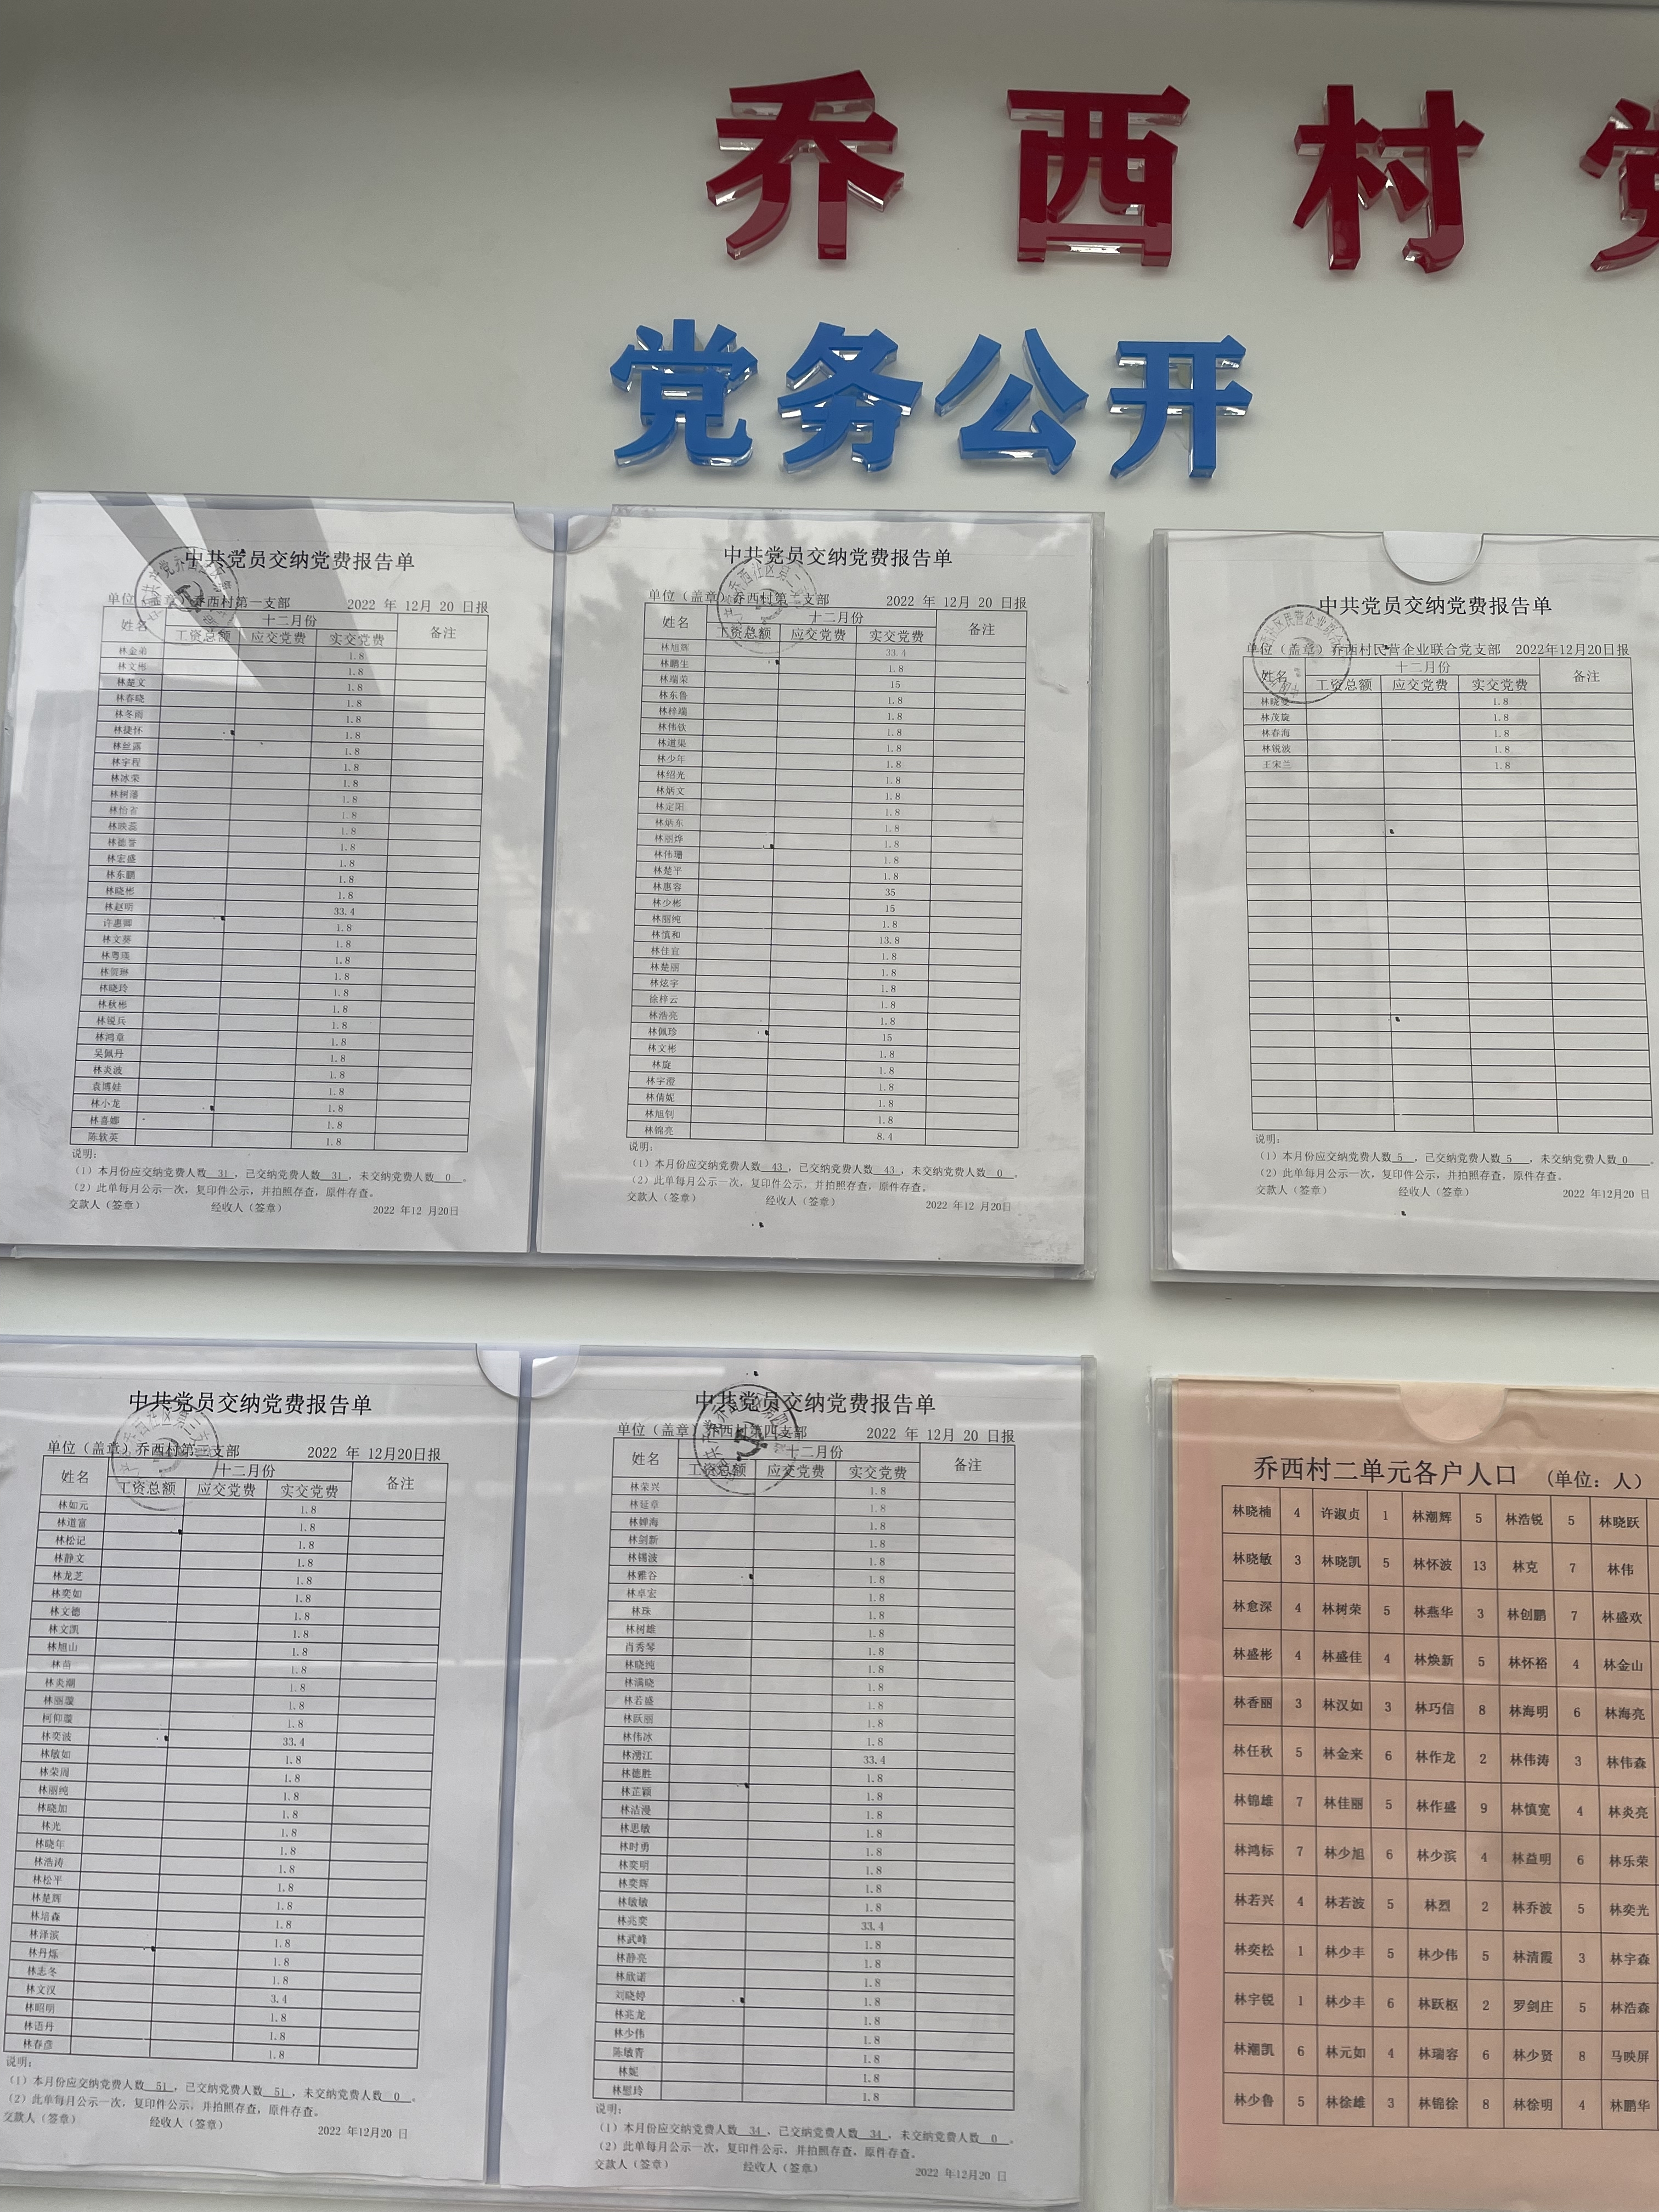 乔西村
党务公开
中共党员交纳党费报告单
单位（盖章）乔西村第一支部 2022 年 12月 20 日报
姓名 十二月份 备注
工资总额 应交党费 实交党费
林金弟 1.8
林文彬 1.8
林楚文 1.8
林春晓 1.8
林冬雨 1.8
林捷怀 1.8
林丝露 1.8
林宇程 1.8
林冰荣 1.8
林树藩 1.8
林怡省 1.8
林映蕊 1.8
林德誉 1.8
林宏盛 1.8
林东鹏 1.8
林晓彬 1.8
林赵明 33.4
许惠卿 1.8
林文葵 1.8
林粤瑛 1.8
林贺琳 1.8
林晓玲 1.8
林秋彬 1.8
林锐兵 1.8
林鸿章 1.8
吴佩丹 1.8
林炎波 1.8
袁博娃 1.8
林小龙 1.8
林喜娜 1.8
陈软英 1.8
说明：
（1）本月份应交纳党费人数 31 ，已交纳党费人数 31 ，未交纳党费人数 0 。
（2）此单每月公示一次，复印件公示，并拍照存查，原件存查。
交款人（签章） 经收人（签章） 2022 年12 月20日
中共党员交纳党费报告单
单位（盖章）乔西村第二支部 2022 年 12月 20 日报
姓名 十二月份 备注
工资总额 应交党费 实交党费
林旭辉 33.4
林鹏生 1.8
林端荣 15
林东鲁 1.8
林梓端 1.8
林伟钦 1.8
林道渠 1.8
林少年 1.8
林绍光 1.8
林炳文 1.8
林定阳 1.8
林炳东 1.8
林丽烨 1.8
林伟珊 1.8
林楚平 1.8
林惠容 35
林少彬 15
林丽纯 1.8
林慎和 13.8
林佳宜 1.8
林楚丽 1.8
林炫宇 1.8
徐梓云 1.8
林浩亮 1.8
林佩珍 15
林文彬 1.8
林旋 1.8
林宇澄 1.8
林倩妮 1.8
林旭钊 1.8
林锦亮 8.4
说明：
（1）本月份应交纳党费人数 43 ，已交纳党费人数 43 ，未交纳党费人数 0 。
（2）此单每月公示一次，复印件公示，并拍照存查，原件存查。
交款人（签章） 经收人（签章） 2022 年12 月20日
中共党员交纳党费报告单
单位（盖章）乔西村民营企业联合党支部 2022年12月20日报
姓名 十二月份 备注
工资总额 应交党费 实交党费
林晓曼 1.8
林茂旋 1.8
林春海 1.8
林锐波 1.8
王宋兰 1.8
说明：
（1）本月份应交纳党费人数 5 ，已交纳党费人数 5 ，未交纳党费人数 0 。
（2）此单每月公示一次，复印件公示，并拍照存查，原件存查。
交款人（签章） 经收人（签章） 2022 年12月20 日
中共党员交纳党费报告单
单位（盖章）乔西村第三支部 2022 年 12月20日报
姓名 十二月份 备注
工资总额 应交党费 实交党费
林如元 1.8
林道富 1.8
林松记 1.8
林静文 1.8
林龙芝 1.8
林奕如 1.8
林文德 1.8
林文凯 1.8
林旭山 1.8
林苗 1.8
林炎潮 1.8
林丽璇 1.8
柯仰璇 1.8
林奕波 33.4
林敏如 1.8
林荣周 1.8
林丽纯 1.8
林晓加 1.8
林光 1.8
林晓年 1.8
林浩涛 1.8
林松平 1.8
林楚辉 1.8
林培森 1.8
林泽滨 1.8
林丹烁 1.8
林志冬 1.8
林文汉 3.4
林昭明 1.8
林语丹 1.8
林春彦 1.8
说明：
（1）本月份应交纳党费人数 51 ，已交纳党费人数 51 ，未交纳党费人数 0 。
（2）此单每月公示一次，复印件公示，并拍照存查，原件存查。
交款人（签章） 经收人（签章） 2022 年12月20 日
中共党员交纳党费报告单
单位（盖章）乔西村第四支部 2022 年 12月 20 日报
姓名 十二月份 备注
工资总额 应交党费 实交党费
林荣兴 1.8
林延章 1.8
林婵海 1.8
林剑新 1.8
林锡波 1.8
林雅谷 1.8
林卓宏 1.8
林珠 1.8
林树雄 1.8
肖秀琴 1.8
林晓纯 1.8
林满晓 1.8
林若盛 1.8
林跃丽 1.8
林伟冰 1.8
林湧江 33.4
林德胜 1.8
林芷颖 1.8
林洁漫 1.8
林思敏 1.8
林时勇 1.8
林奕明 1.8
林奕辉 1.8
林敏敏 1.8
林兆奕 33.4
林武峰 1.8
林静亮 1.8
林欣诺 1.8
刘晓婷 1.8
林兆龙 1.8
林少伟 1.8
陈敏青 1.8
林妮 1.8
林慰玲 1.8
说明：
（1）本月份应交纳党费人数 34 ，已交纳党费人数 34 ，未交纳党费人数 0 。
（2）此单每月公示一次，复印件公示，并拍照存查，原件存查。
交款人（签章） 经收人（签章） 2022 年12月20 日
乔西村二单元各户人口 （单位：人）
林晓楠 4 许淑贞 1 林潮辉 5 林浩锐 5 林晓跃
林晓敏 3 林晓凯 5 林怀波 13 林克 7 林伟
林愈深 4 林树荣 5 林燕华 3 林创鹏 7 林盛欢
林盛彬 4 林盛佳 4 林焕新 5 林怀裕 4 林金山
林香丽 3 林汉如 3 林巧信 8 林海明 6 林海亮
林任秋 5 林金来 6 林作龙 2 林伟涛 3 林伟森
林锦雄 7 林佳丽 5 林作盛 9 林慎宽 4 林炎亮
林鸿标 7 林少旭 6 林少滨 4 林益明 6 林乐荣
林若兴 4 林若波 5 林烈 2 林乔波 5 林奕光
林奕松 1 林少丰 5 林少伟 5 林清霞 3 林宇森
林宇锐 1 林少丰 6 林跃枢 2 罗剑庄 5 林浩森
林潮凯 6 林元如 4 林瑞容 6 林少贤 8 马映屏
林少鲁 5 林徐雄 3 林锦徐 8 林徐明 4 林鹏华